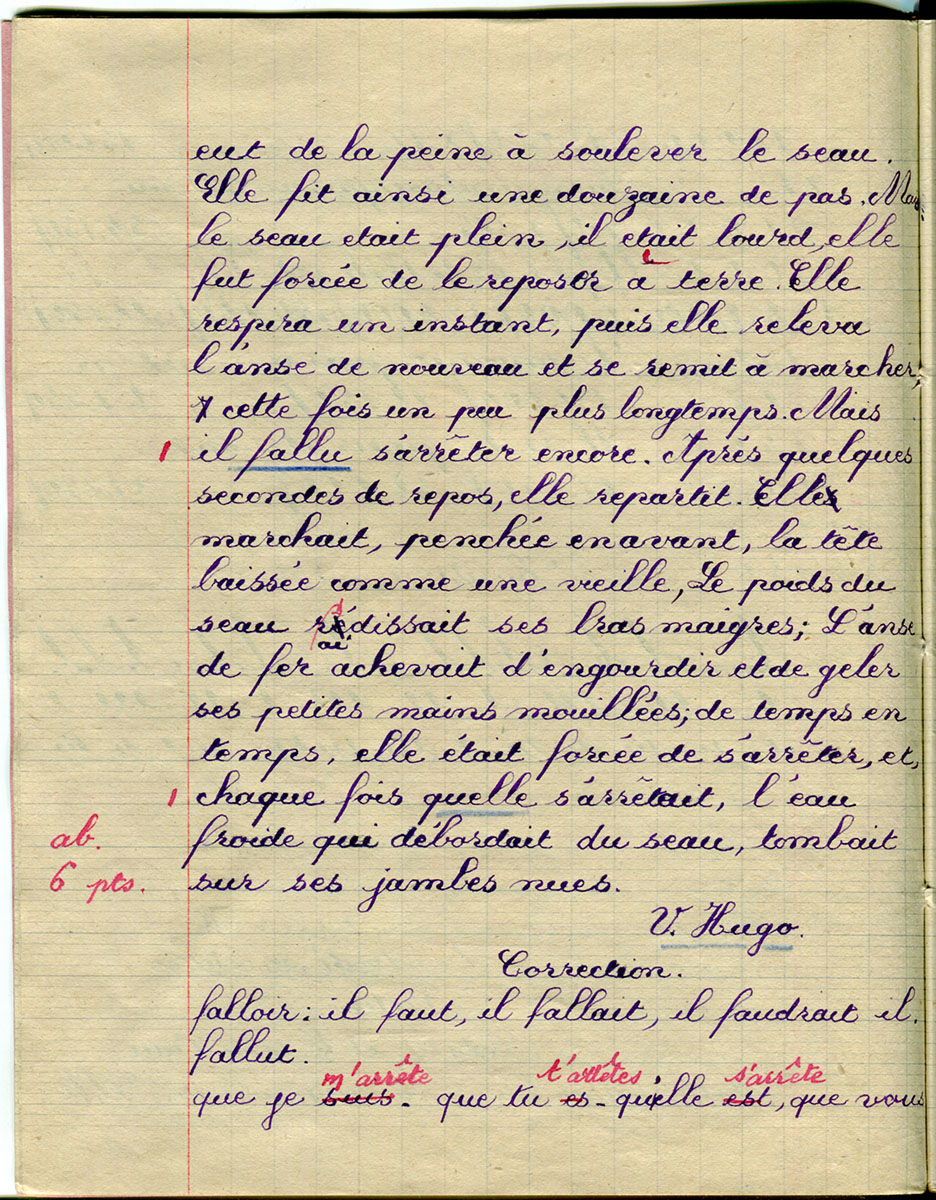 eut de la peine à soulever le seau.
Elle fit ainsi une douzaine de pas. Mais
le seau etait plein, il etait lourd, elle
fut forcée de le reposer à terre. Elle
respira un instant, puis elle releva
l'anse de nouveau et se remit à marcher,
cette fois un peu plus longtemps. Mais
1 il fallu s'arrêter encore. Après quelques
secondes de repos, elle repartit. Elle
marchait, penchée en avant, la tête
baissée comme une vieille, Le poids du
seau rédissait ses bras maigres; L'anse
ai
de fer achevait d'engourdir et de geler
ses petites mains mouillées; de temps en
temps, elle était forcée de s'arrêter, et,
1 chaque fois quelle s'arrêtait, l'eau
ab. froide qui débordait du seau, tombait
6 pts. sur ses jambes nues.
V. Hugo.
Correction.
falloir: il faut, il fallait, il faudrait il
fallut.
m'arrête t'arrêtes s'arrête
que je suis - que tu es - qu'elle est, que vous